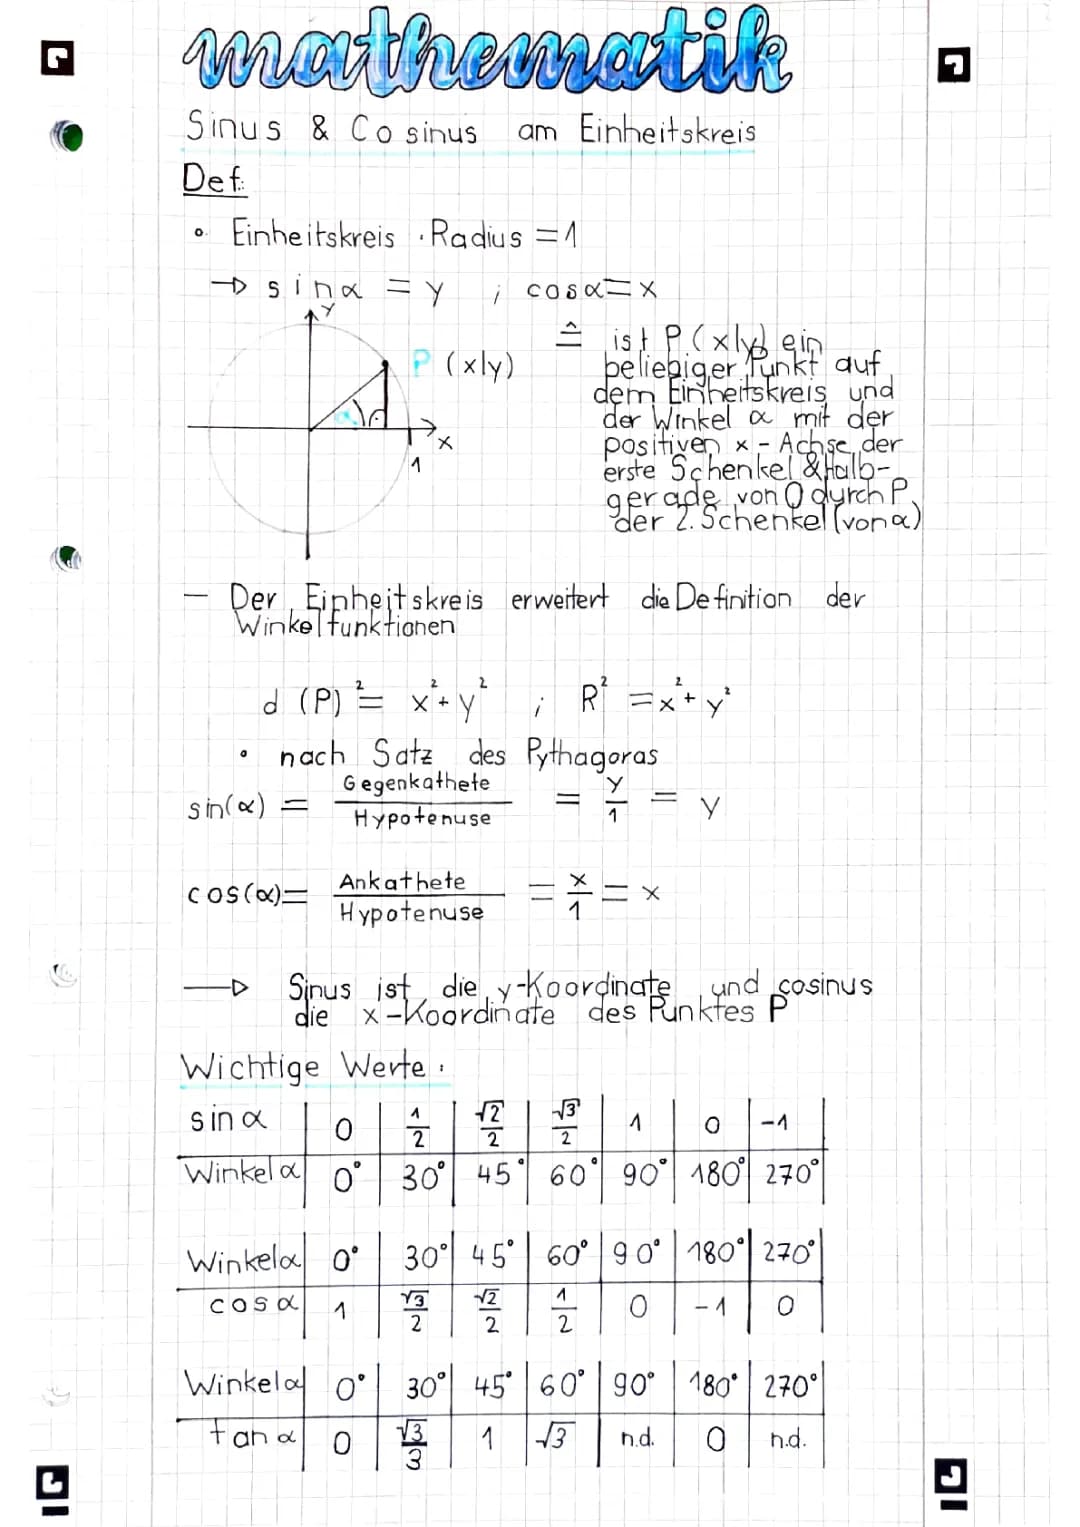 mathematik
Sinus & Cosinus am Einheitskreis
Def.:
• Einheitskreis · Radius = 1
→ sinα = y ; cosα = x
y
P (x|y)
α
x
1
≙ ist P(x|y) ein
beliebiger Punkt auf
dem Einheitskreis und
der Winkel α mit der
positiven x-Achse der
erste Schenkel & Halb-
gerade von O durch P
der 2. Schenkel (von α)
— Der Einheitskreis erweitert die Definition der
Winkelfunktionen
d (P)² = x² + y² ; R² = x² + y²
• nach Satz des Pythagoras
sin(α) = Gegenkathete / Hypotenuse = y/1 = y
cos(α) = Ankathete / Hypotenuse = x/1 = x
→ Sinus ist die y-Koordinate und cosinus
die x-Koordinate des Punktes P
Wichtige Werte:
sin α | 0 | 1/2 | √2/2 | √3/2 | 1 | 0 | -1
Winkel α | 0° | 30° | 45° | 60° | 90° | 180° | 270°
Winkel α | 0° | 30° | 45° | 60° | 90° | 180° | 270°
cos α | 1 | √3/2 | √2/2 | 1/2 | 0 | -1 | 0
Winkel α | 0° | 30° | 45° | 60° | 90° | 180° | 270°
tan α | 0 | √3/3 | 1 | √3 | n.d. | 0 | n.d.